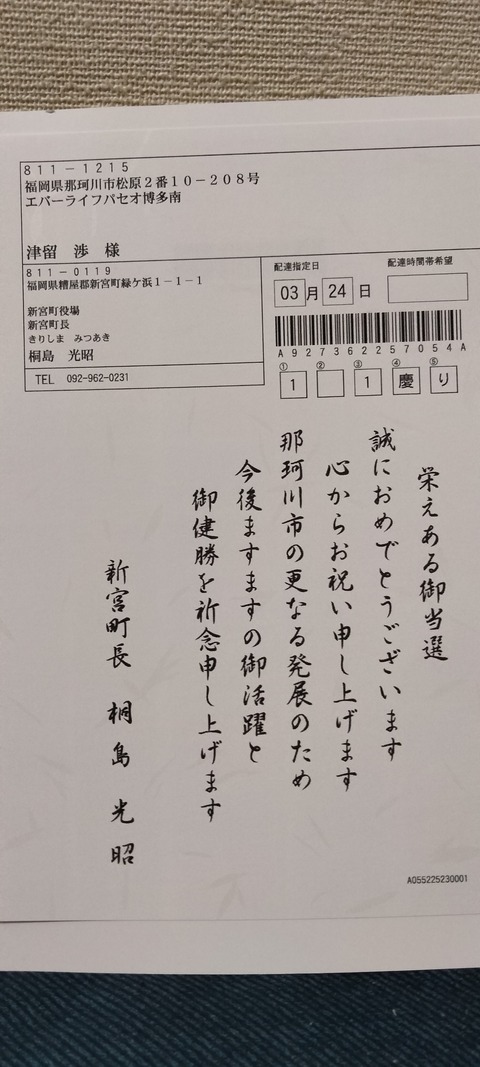 811-1215
福岡県那珂川市松原2番10-208号
エバーライフパセオ博多南
津留 渉 様
811-0119
福岡県糟屋郡新宮町緑ケ浜1-1-1
新宮町役場
新宮町長
きりしま みつあき
桐島 光昭
TEL 092-962-0231
配達指定日
配達時間帯希望
03月24日
A9273622570 54A
① ② ③ ④ ⑤
1 1 慶 り
栄えある御当選
誠におめでとうございます
心からお祝い申し上げます
那珂川市の更なる発展のため
今後ますますの御活躍と
御健勝を祈念申し上げます
新宮町長 桐島 光昭
A055225230001